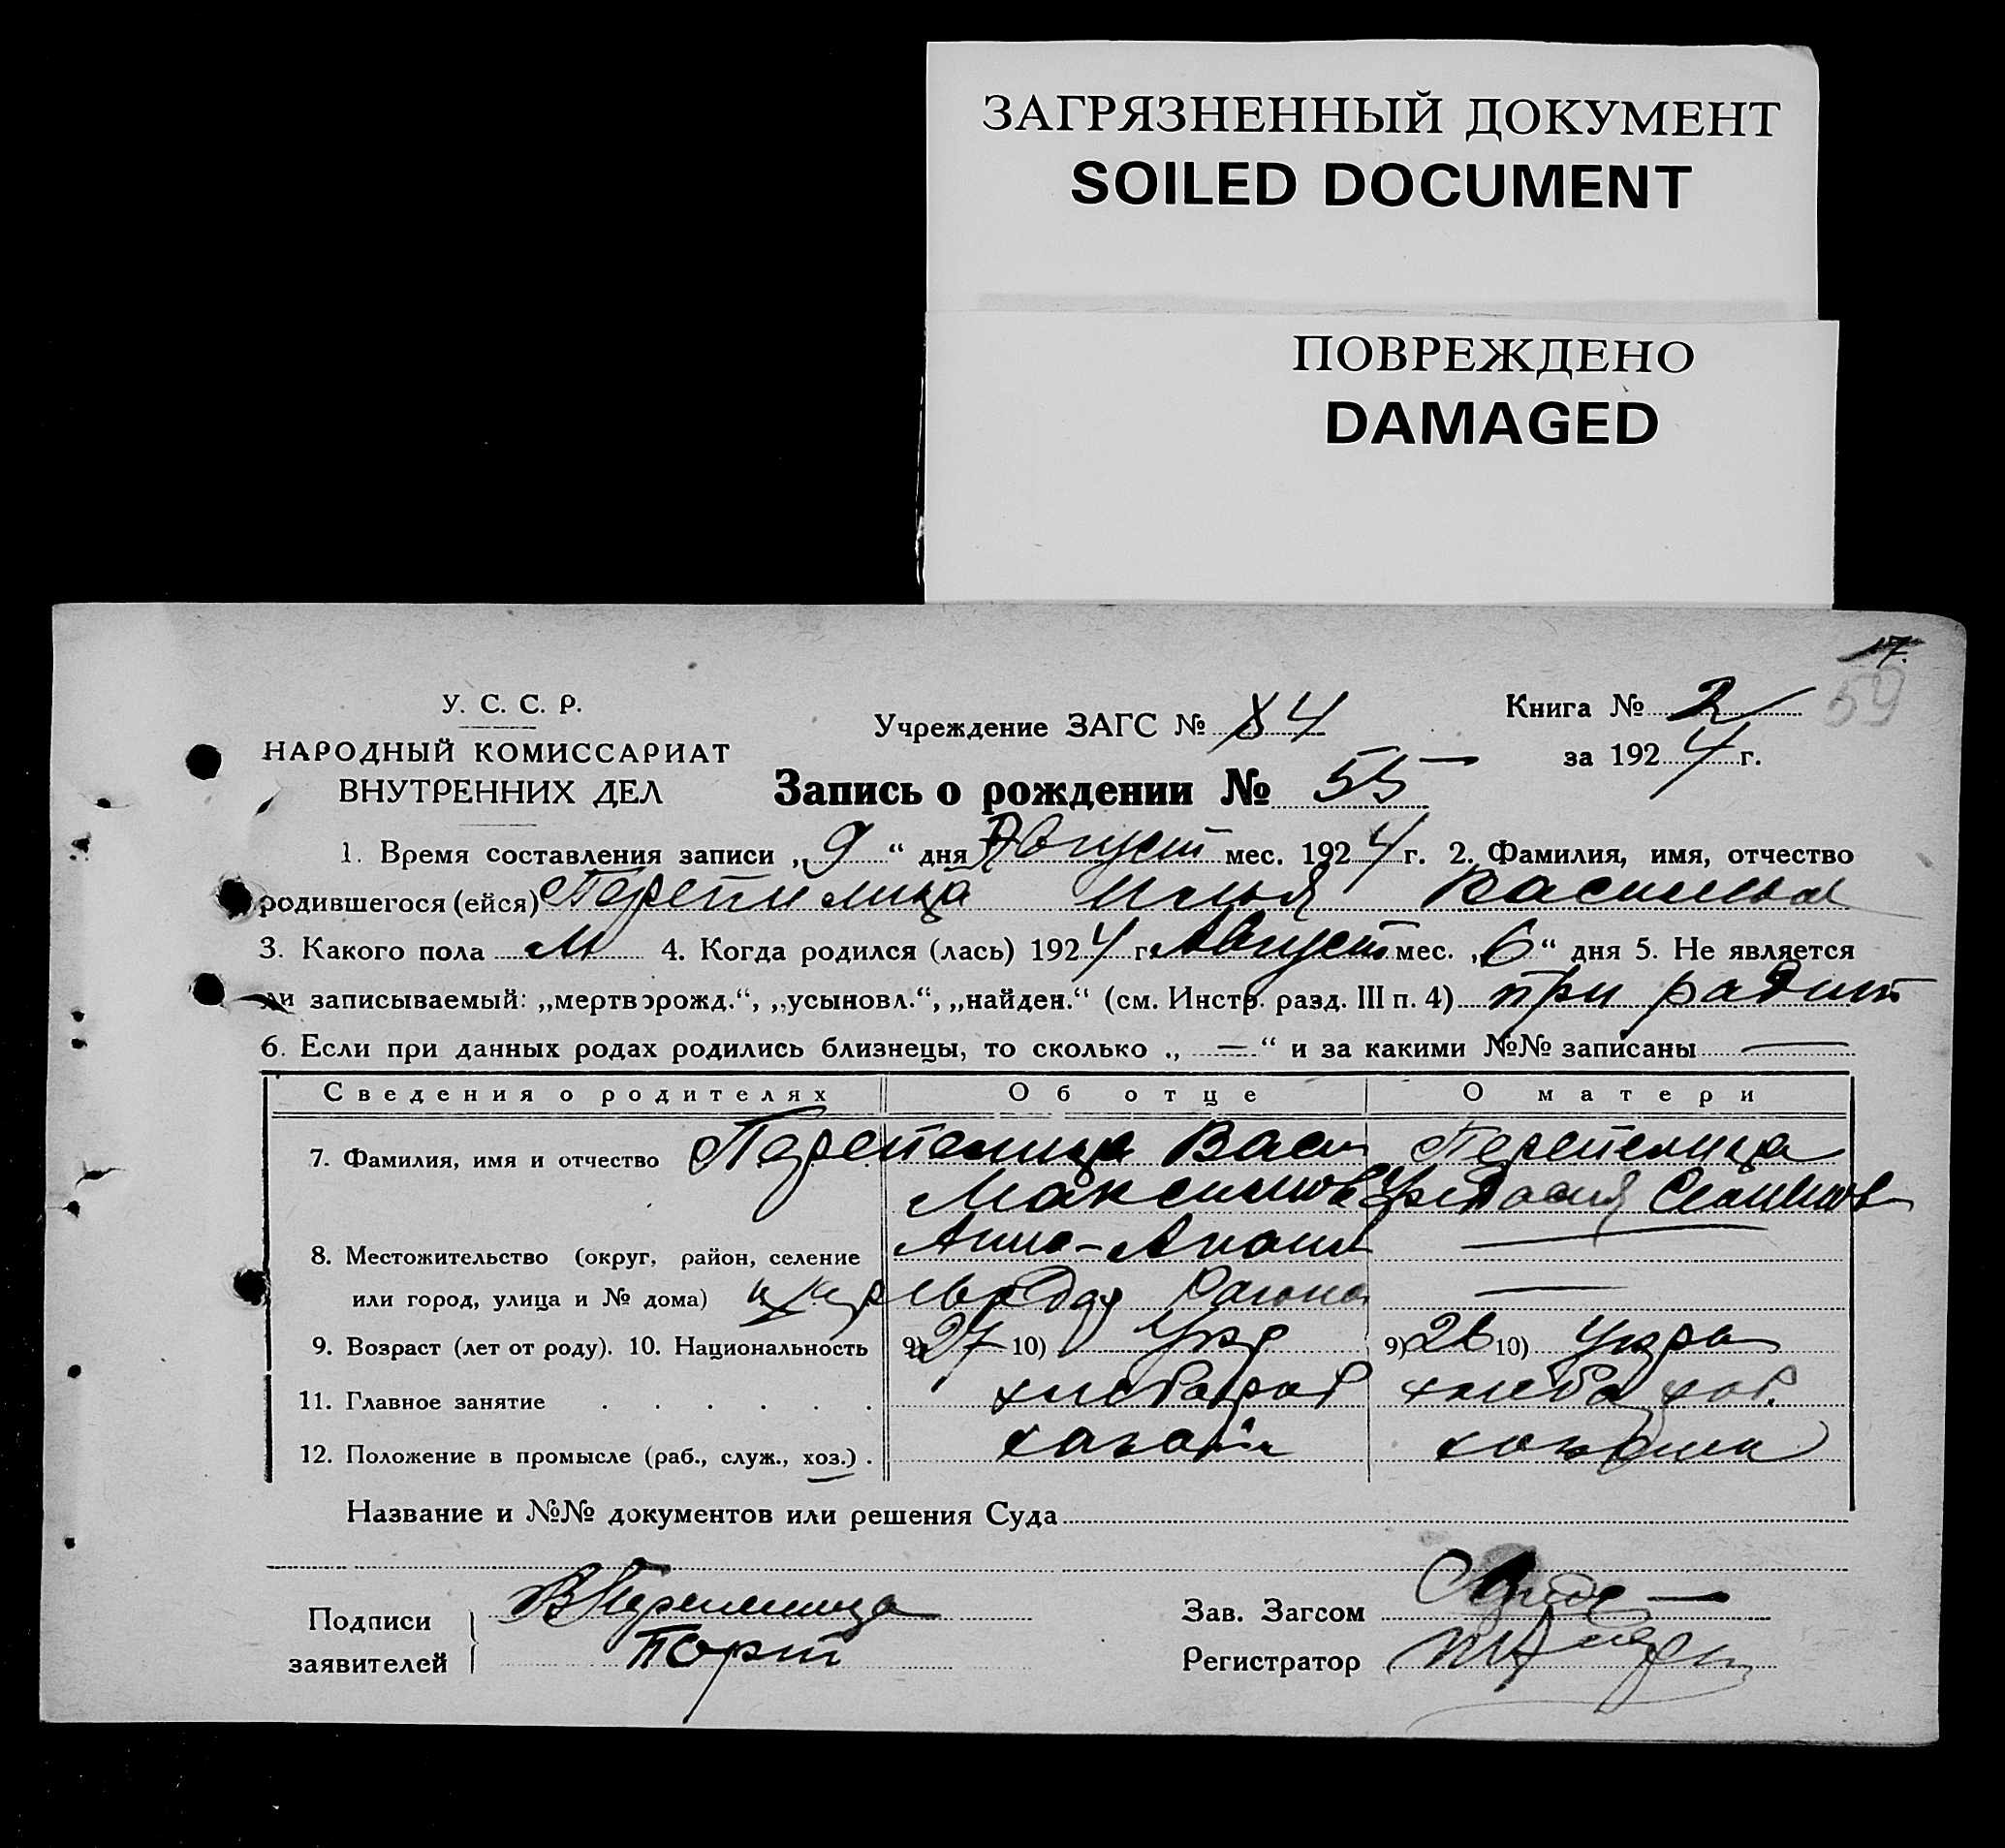 ЗАГРЯЗНЕННЫЙ ДОКУМЕНТ
SOILED DOCUMENT
ПОВРЕЖДЕНО
DAMAGED
17.
59
У. С. С. Р.
НАРОДНЫЙ КОМИССАРИАТ
ВНУТРЕННИХ ДЕЛ
Учреждение ЗАГС № 84
Книга № 2
за 1924 г.
Запись о рождении № 55
1. Время составления записи „9“ дня Август мес. 1924 г. 2. Фамилия, имя, отчество
родившегося (ейся) Перепилица Илья Васильев
3. Какого пола м 4. Когда родился (лась) 1924 г. Август мес. „6“ дня 5. Не является
ли записываемый: „мертворожд.“, „усыновл.“, „найден.“ (см. Инстр. разд. III п. 4) при
6. Если при данных родах родились близнецы, то сколько „ — “ и за какими №№ записаны —
Сведения о родителях Об отце О матери
7. Фамилия, имя и отчество Перепелица Васи Перепелица
Максимов
8. Местожительство (округ, район, селение
или город, улица и № дома)
9. Возраст (лет от роду). 10. Национальность 9) 27 10) Укр 9) 26 10) Укра
11. Главное занятие хлебороб
12. Положение в промысле (раб., служ., хоз.) . хозяин
Название и №№ документов или решения Суда
Подписи заявителей
ВПерепелица
Зав. Загсом
Регистратор